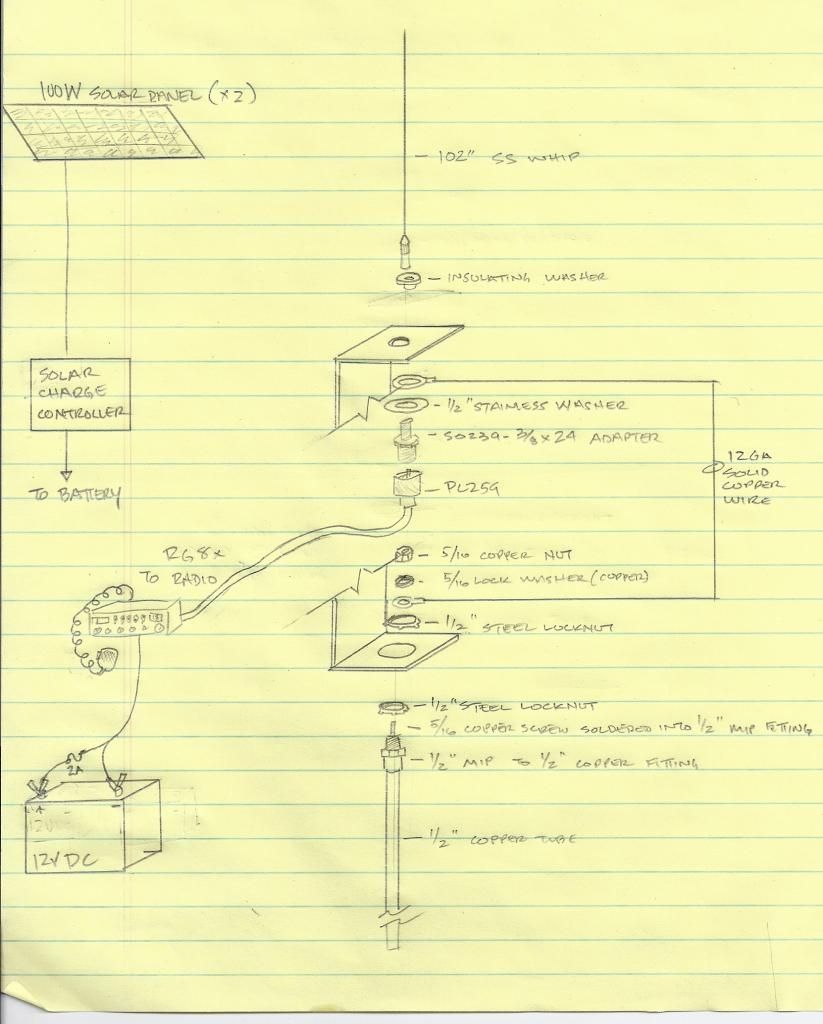 100W SOLAR PANEL (x2)
102" SS WHIP
INSULATING WASHER
SOLAR
CHARGE
CONTROLLER
1/2" STAINLESS WASHER
SO239 - 3/8 x 24 ADAPTER
12GA
SOLID
COPPER
WIRE
TO BATTERY
PL259
RG8x
TO RADIO
5/16 COPPER NUT
5/16 LOCK WASHER (COPPER)
1/2" STEEL LOCKNUT
1/2" STEEL LOCKNUT
5/16 COPPER SCREW SOLDERED INTO 1/2" MIP FITTING
1/2" MIP TO 1/2" COPPER FITTING
2A
+ -
12V
12V DC
1/2" COPPER TUBE